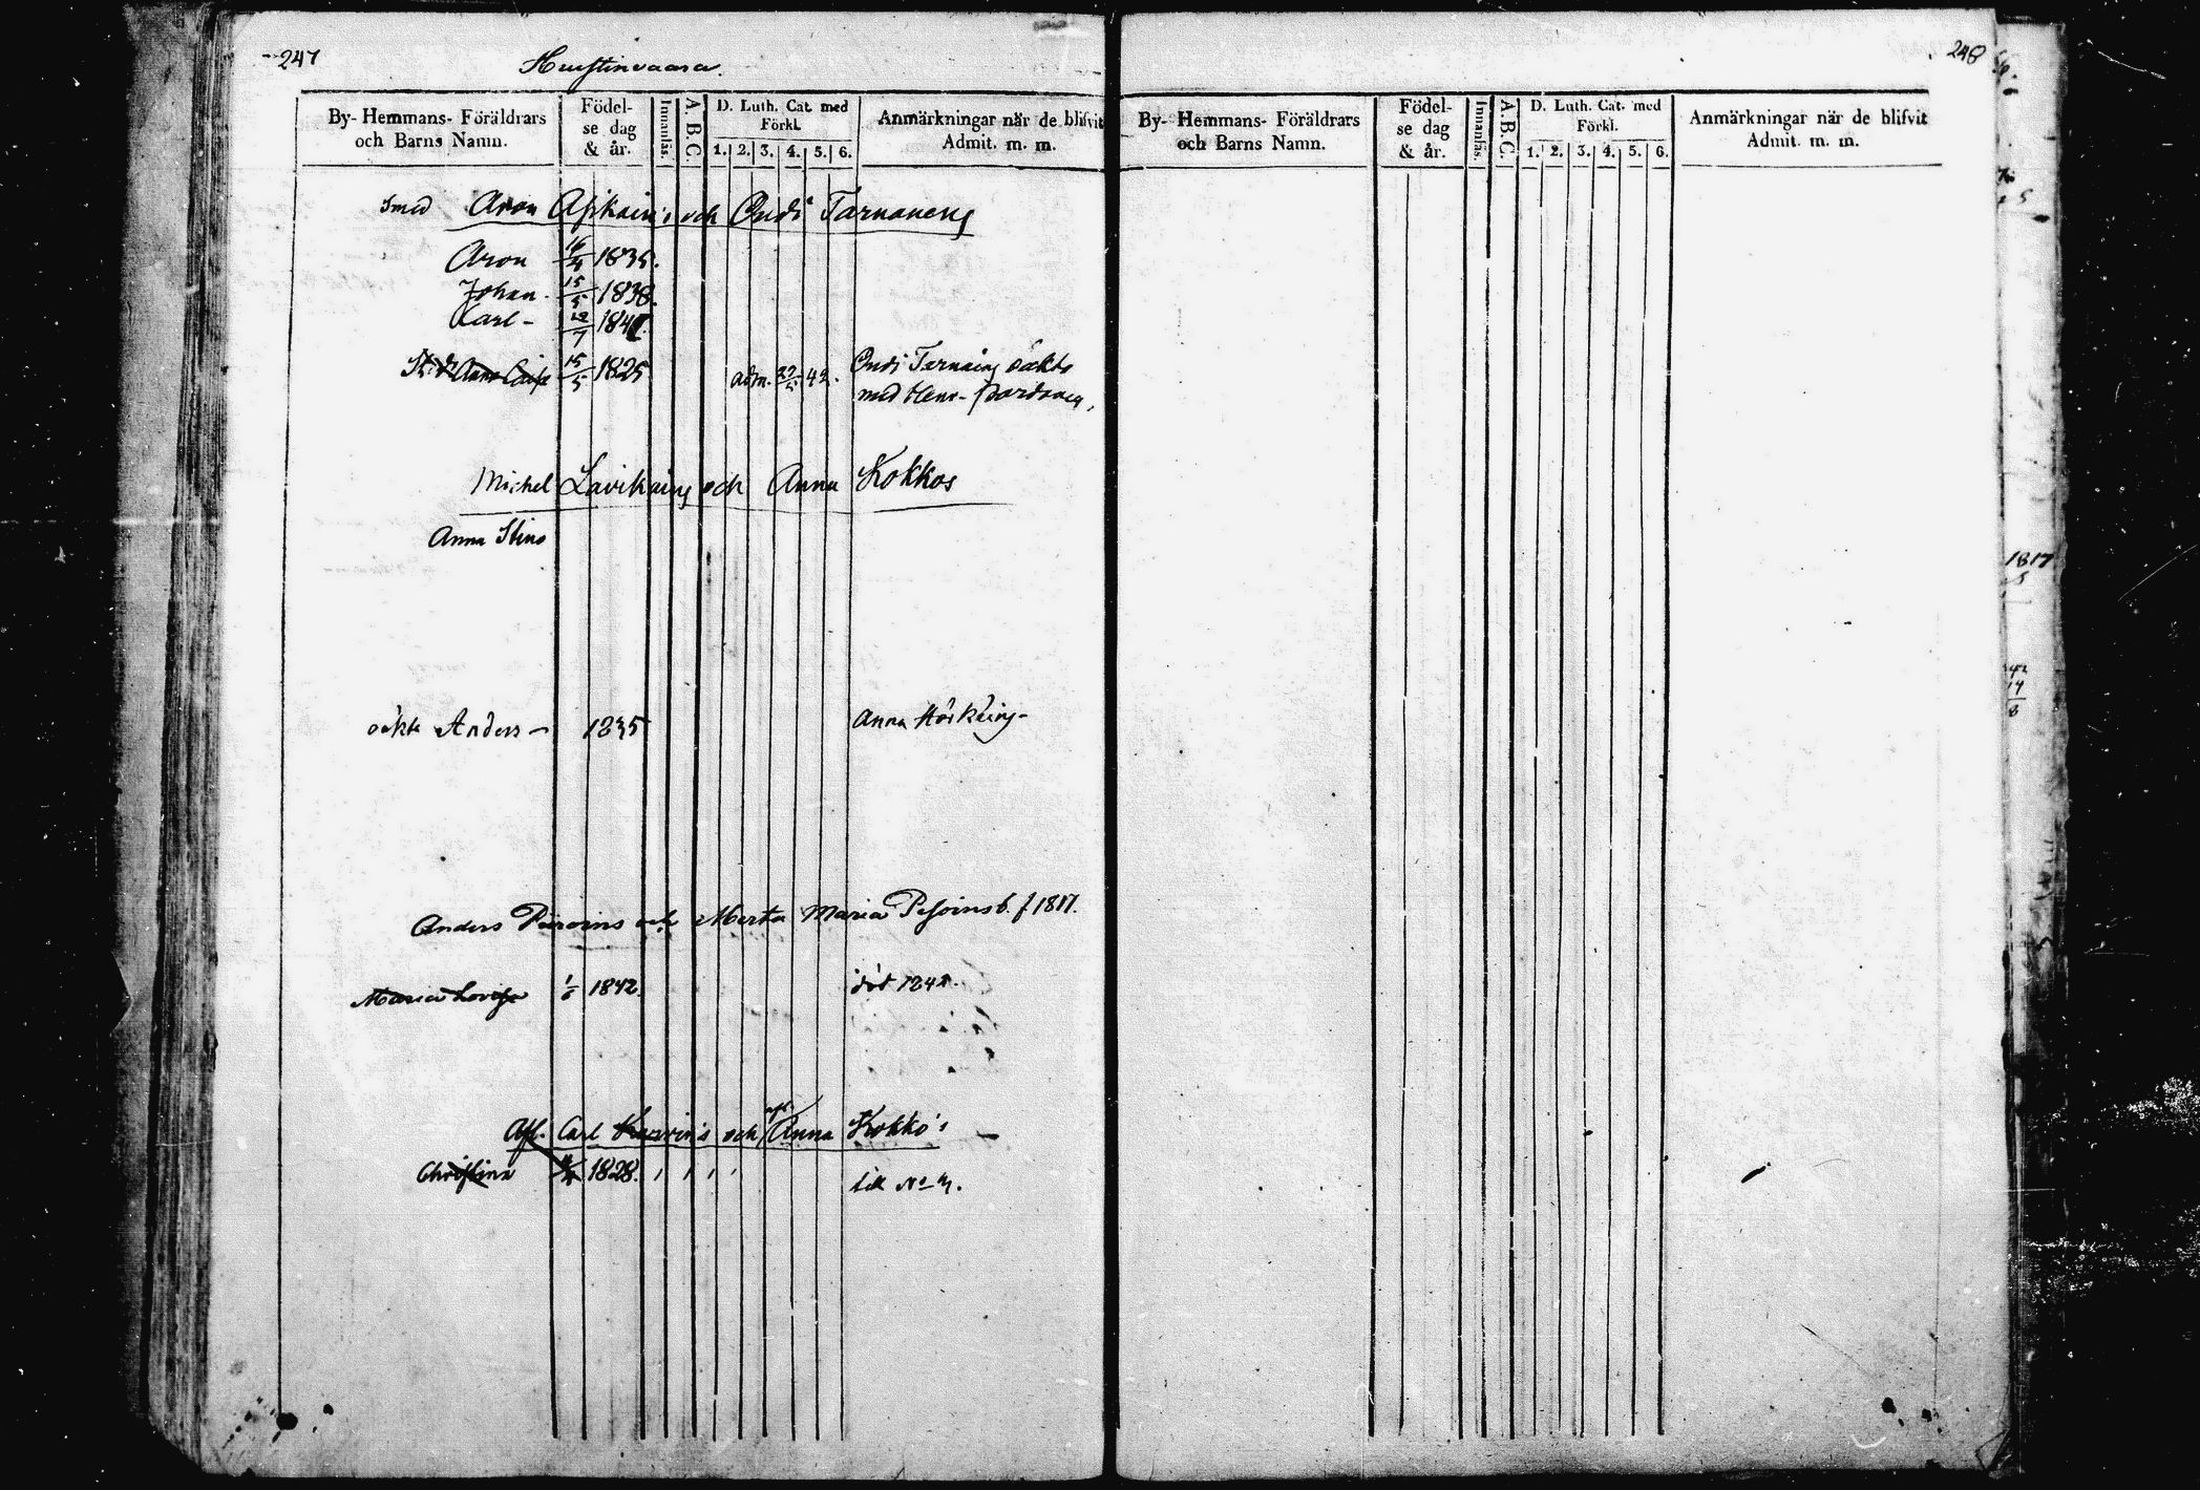 247
Hurstinvaara.
By- Hemmans- Föräldrars och Barns Namn.
Födel- se dag & år.
Innanläs.
A. B. C.
D. Luth. Cat. med Förkl.
1. 2. 3. 4. 5. 6.
Anmärkningar när de blifvit Admit. m. m.
Smed Aron och Tarnanens
Aron 16/4 1835.
Johan - 15/5 1838.
Carl - 12/7 184
Anna Caisa 15/5 1825 adm. 42. Tarnains oäkts
med Henr-
Michel Lavikains och Anna Kokkos
Anna Stina
oäkta Anders - 1835 Anna
Anders Parvins och Merta Maria f 1817.
Maria Lovisa 1842. död 1842.
Afl. Carl och afl. Anna Kokko's
Christina 1828. till No
248
By- Hemmans- Föräldrars och Barns Namn.
Födel- se dag & år.
Innanläs.
A. B. C.
D. Luth. Cat. med Förkl.
1. 2. 3. 4. 5. 6.
Anmärkningar när de blifvit Admit. m. m.
1817